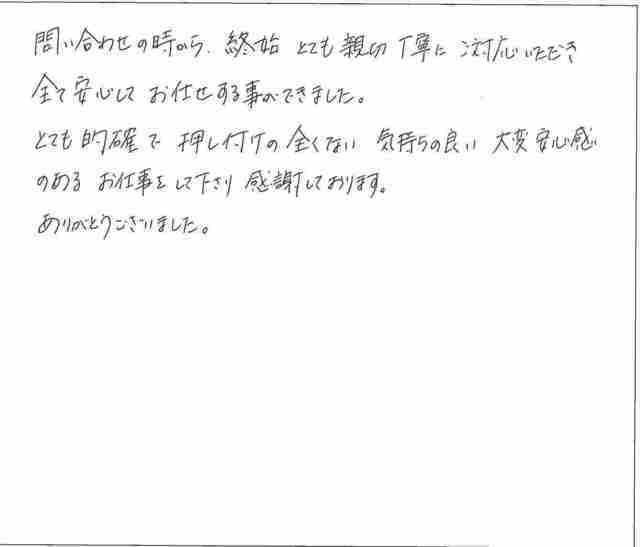 問い合わせの時から、終始 とても親切丁寧に 対応いただき
全て安心して お任せする事ができました。
とても的確で 押し付けの全くない 気持ちの良い 大変安心感
のある お仕事をして下さり 感謝しております。
ありがとうございました。